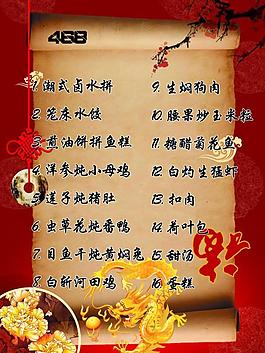 468
1.潮式卤水拼
2.笼床水饺
3.煎油饼拼鱼糕
4.洋参炖小母鸡
5.莲子炖猪肚
6.虫草花炖番鸭
7.目鱼干炖黄焖兔
8.白斩河田鸡
9.生焖狗肉
10.腰果炒玉米粒
11.糖醋菊花鱼
12.白灼生猛虾
13.扣肉
14.荷叶包
15.甜汤
16.蛋糕